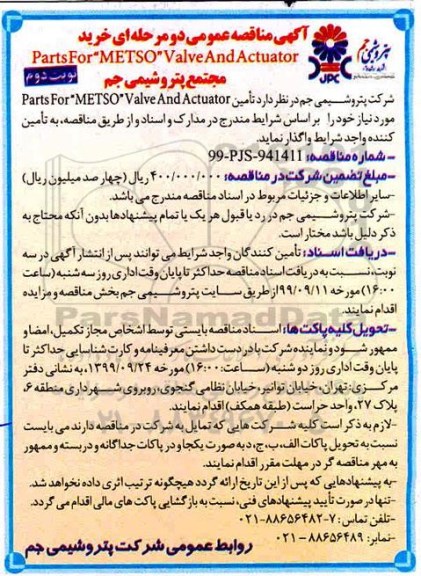 آگهی مناقصه عمومی دو مرحله ای خرید
Parts For "METSO" Valve And Actuator
مجتمع پتروشیمی جم
نوبت دوم
پتروشیمی جم
JPC
شرکت پتروشیمی جم در نظر دارد تأمین Parts For "METSO" Valve And Actuator
مورد نیاز خود را بر اساس شرایط مندرج در مدارک و اسناد و از طریق مناقصه، به تأمین
کننده واجد شرایط واگذار نماید.
- شماره مناقصه: 99-PJS-941411
- مبلغ تضمین شرکت در مناقصه: ۴۰۰/۰۰۰/۰۰۰ ریال (چهار صد میلیون ریال)
-سایر اطلاعات و جزئیات مربوط در اسناد مناقصه مندرج می باشد.
-شرکت پتروشیمی جم در رد یا قبول هر یک یا تمام پیشنهادها بدون آنکه محتاج به
ذکر دلیل باشد مختار است.
-دریافت اسناد: تأمین کنندگان واجد شرایط می توانند پس از انتشار آگهی در سه
نوبت، نسبت به دریافت اسناد مناقصه حداکثر تا پایان وقت اداری روز سه شنبه (ساعت
۱۶:۰۰) مورخه ۹۹/۰۹/۱۱ از طریق سایت پتروشیمی جم بخش مناقصه و مزایده
اقدام نمایند.
-تحویل کلیه پاکت ها: اسناد مناقصه بایستی توسط اشخاص مجاز تکمیل، امضا و
ممهور شود و نماینده شرکت با در دست داشتن معرفینامه و کارت شناسایی حداکثر تا
پایان وقت اداری روز دو شنبه (ساعت: ۱۶:۰۰) مورخه ۱۳۹۹/۰۹/۲۴، به نشانی دفتر
مرکزی: تهران، خیابان توانیر، خیابان نظامی گنجوی، روبروی شهرداری منطقه ۶،
پلاک ۲۷، واحد حراست (طبقه همکف) اقدام نمایند.
-لازم به ذکر است کلیه شرکت هایی که تمایل به شرکت در مناقصه دارند می بایست
نسبت به تحویل پاکات الف، ب، ج، د به صورت یکجا و در پاکات جداگانه و دربسته و ممهور
به مهر مناقصه گر در مهلت مقرر اقدام نمایند.
-به پیشنهادهایی که پس از این تاریخ ارائه گردد هیچگونه ترتیب اثری داده نخواهد شد.
-تنها در صورت تأیید پیشنهادهای فنی، نسبت به بازگشایی پاکت های مالی اقدام می گردد.
-تلفن تماس: ۷-۸۸۶۵۶۴۸۲-۰۲۱
-نمابر: ۸۸۶۵۶۴۸۹-۰۲۱
روابط عمومی شرکت پتروشیمی جم
ParsNamadData